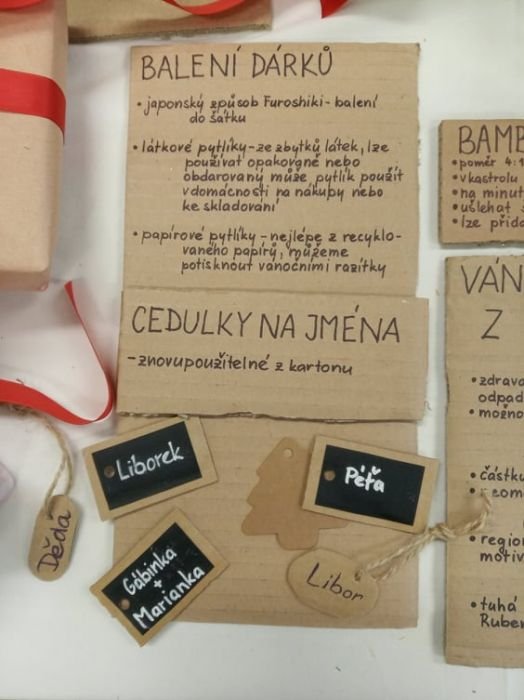 BALENÍ DÁRKŮ
• japonský způsob Furoshiki - balení
do šátku
• látkové pytlíky - ze zbytků látek, lze
používat opakovaně nebo
obdarovaný může pytlík použít
v domácnosti na nákupy nebo
ke skladování
• papírové pytlíky - nejlépe z recyklo-
vaného papírů, můžeme
potisknout vánočními razítky
CEDULKY NA JMÉNA
- znovupoužitelné z kartonu
Liborek
Péťa
Děda
Gábinka
+
Marianka
Libor
BAMB
• poměr 4:1
• v kastrolu
• na minut
• ušlehat
• lze přida
VÁN
Z
• zdrava
odpad
• možno
• částku
• regior
motiv
• tuhá
Ruber